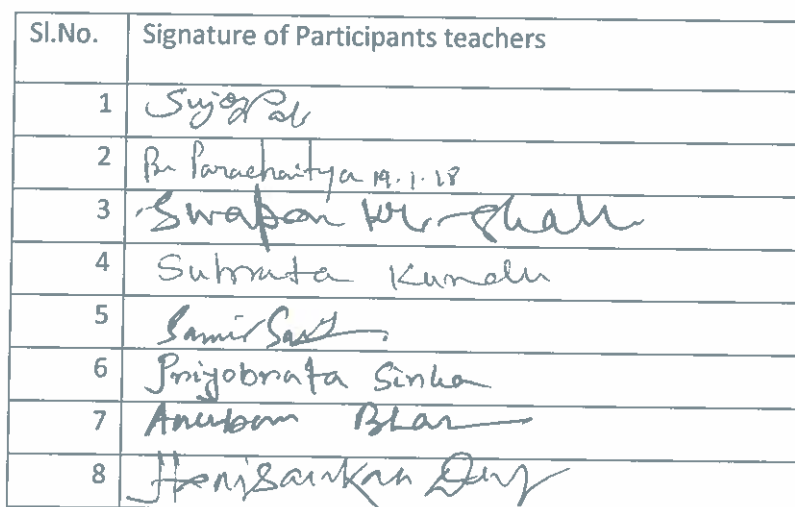 Sl.No. Signature of Participants teachers
1 Sujoy Pal
2 Br Parachaitya 19.1.18
3 Swapan Kr.
4 Subrata Kundu
5 Samir
6 Priyobrata Sinha
7 Anupam Bhar
8 Harisankar Dey